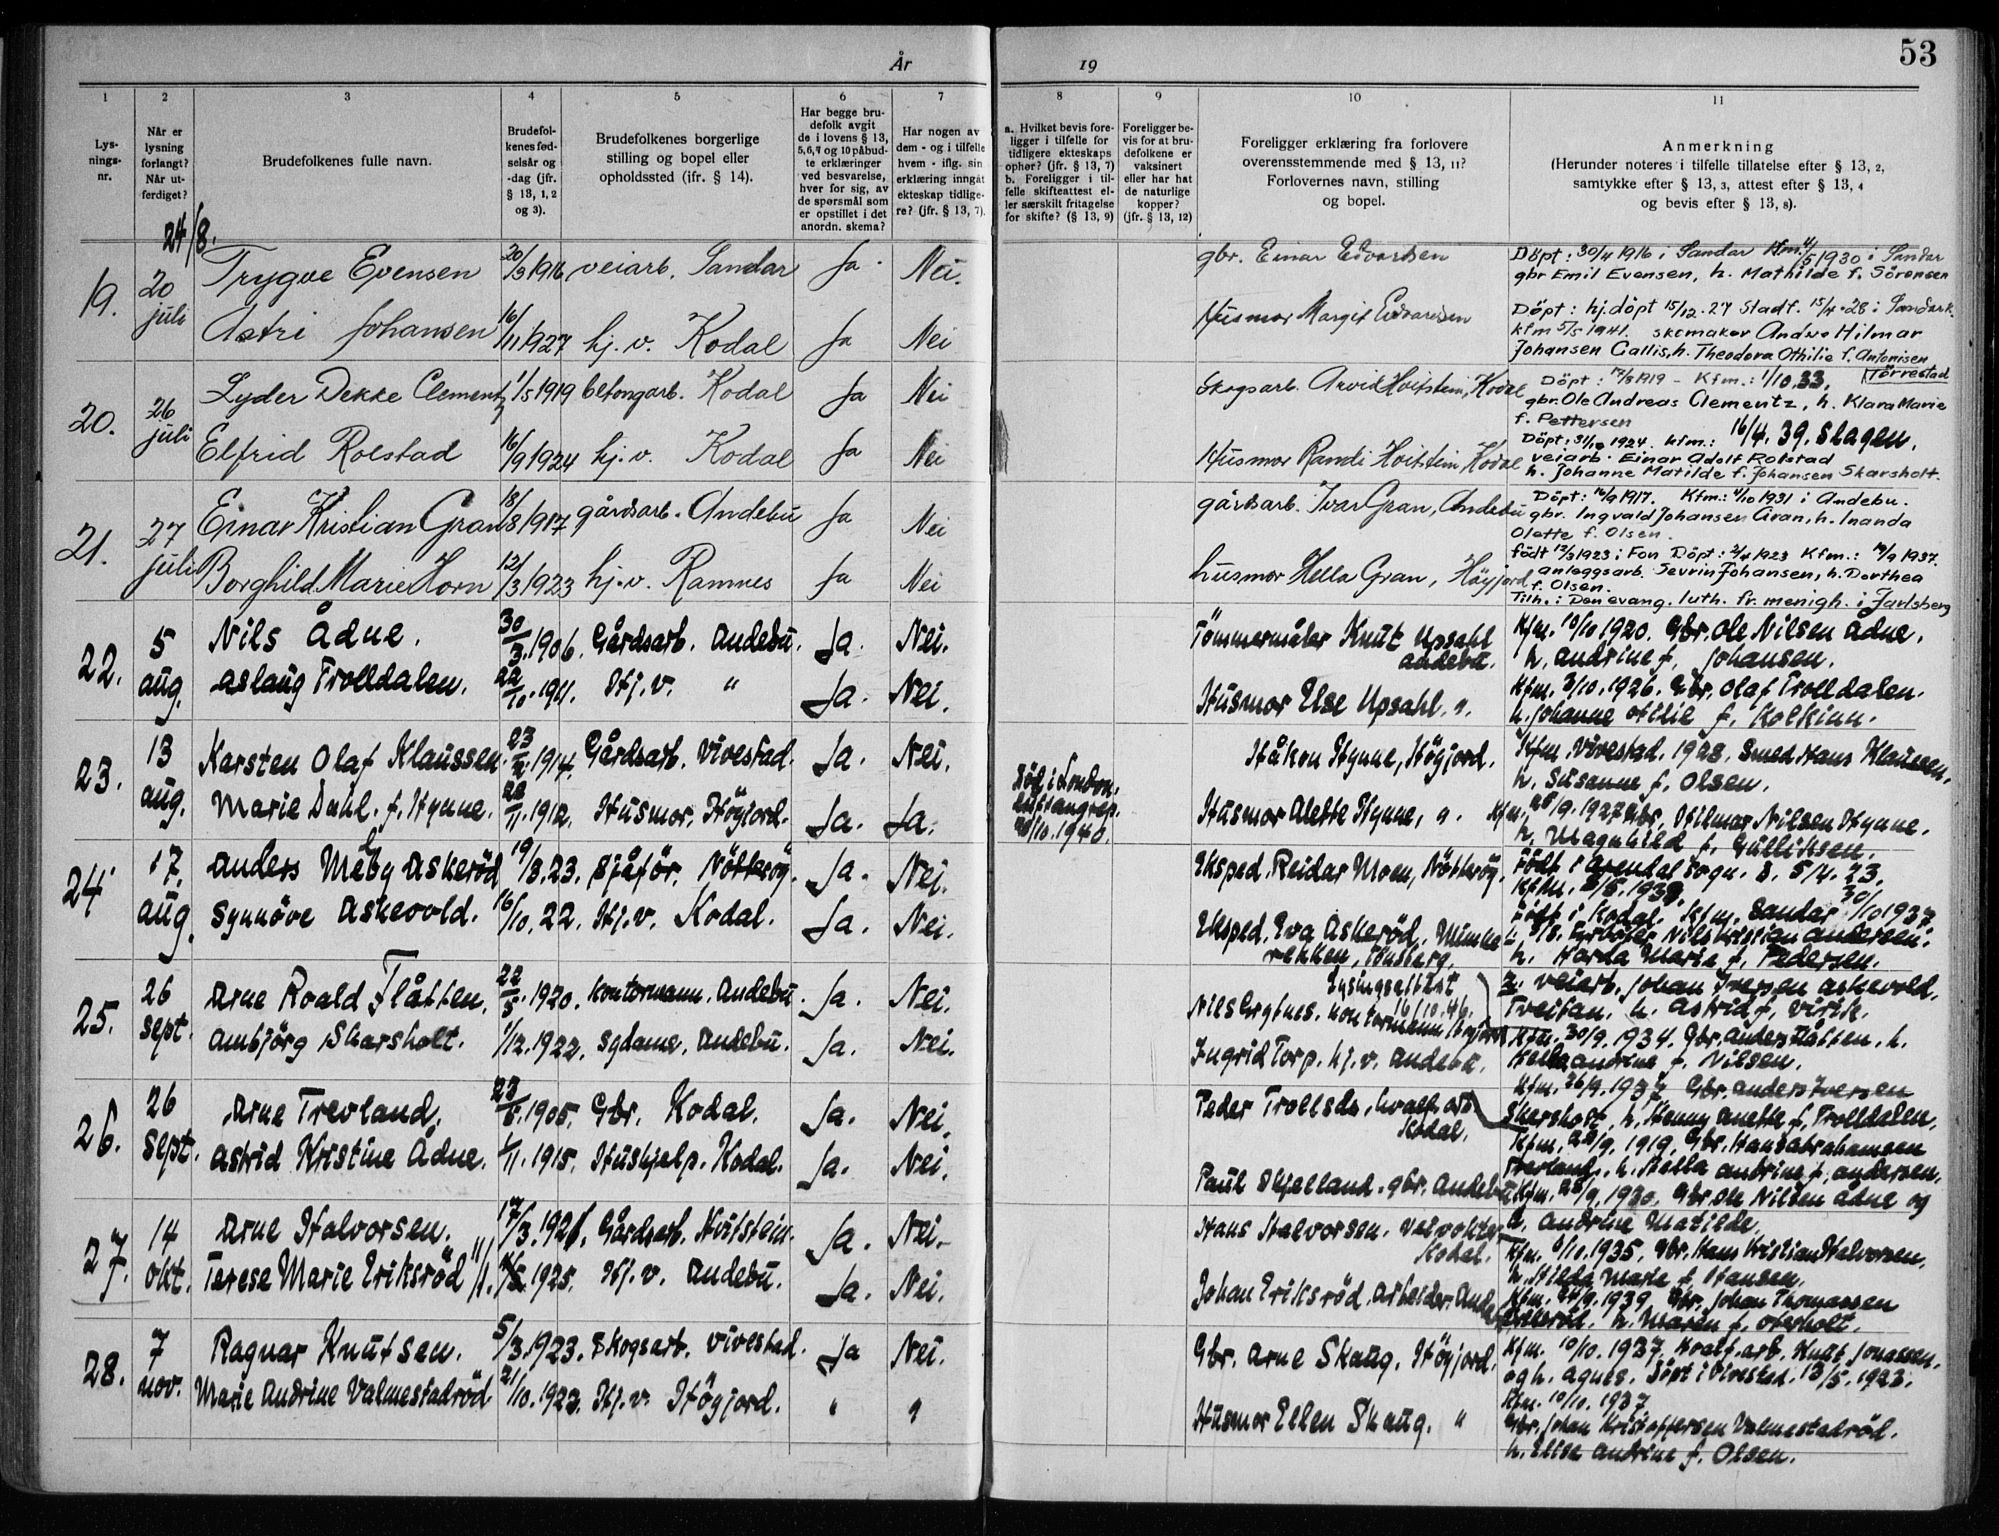 53
År
19
1
2
3
4
5
6
7
8
9
10
11
Lys-
nings-
nr.
Når er
lysning
forlangt?
Når ut-
ferdiget?
Brudefolkenes fulle navn.
Brudefol-
kenes fød-
selsår og
-dag (jfr.
§ 13, 1, 2
og 3).
Brudefolkenes borgerlige
stilling og bopel eller
opholdssted (ifr. § 14).
Har begge bru-
defolk avgit
de i lovens § 13,
5,6,9 og 10 påbud-
te erklæringer
ved besvarelse,
hver for sig, av
de spørsmål som
er opstillet i det
anordn. skema?
Har nogen av
dem - og i tilfelle
hvem - iflg. sin
erklæring inngåt
ekteskap tidlige-
re? (jfr. § 13, 7).
a. Hvilket bevis fore-
ligger i tilfelle for
tidligere ekteskaps
ophør? (jfr. § 13, 7)
b. Foreligger i til-
felle skifteattest el-
ler særskilt fritagelse
for skifte? (§ 13, 9)
Foreligger be-
vis for at bru-
defolkene er
vaksinert
eller har hat
de naturlige
kopper?
(jfr. § 13, 12)
Foreligger erklæring fra forlovere
overensstemmende med § 13, 11?
Forlovernes navn, stilling
og bopel.
Anmerkning
(Herunder noteres i tilfelle tillatelse efter § 13, 2,
samtykke efter § 13, 3, attest efter § 13, 4
og bevis efter § 13, 8).
24/8.
19. 20 juli Trygve Evensen 20/3 1916 veiarb. Sandar Ja. Nei. gbr. Einar Edvardsen
Döpt: 30/4 1916 i Sandar Kfm. 4/5 1930 i Sandar
gbr Emil Evensen, h. Mathilde f. Sörensen
Astri Johansen 16/11 1927 hj. v. Kodal Ja Nei Husmor Margit Edvardsen
Döpt: hj. döpt 15/12.27 Stadf. 15/4-28 i Sandark.
kfm 5/5 1941. skomaker Hilmar
Johansen Gallis, h. Theodora Othilie f. Antonisen
20. 26 juli Lyder Dekke Clementz 1/5 1919 betongarb. Kodal Ja Nei Skogsarb. Arvid Hvitstein, Kodal
Döpt: 1919 - Kfm.: 1/10.33.
gbr. Ole Andreas Clementz, h. Klara Marie
f. Pettersen
Elfrid Rolstad 16/9 1924 hj. v. Kodal Ja Nei Husmor Randi Hvitstein, Kodal
16/4. 39. Slagen.
Döpt: 1924. kfm.:
veiarb. Einar Adolf Rolstad
h. Johanne Matilde f. Johansen Skarsholt.
21. 27 juli Einar Kristian Gran 18/8 1917 gårdsarb. Andebu Ja Nei gårdsarb. Ivar Gran, Andebu
Döpt: 16/9 1917. Kfm.: 4/10 1931 i Andebu.
gbr. Ingvald Johansen Gran, h. Inanda
Olette f. Olsen.
Borghild Marie Horn 12/3 1923 hj. v. Ramnes Ja Nei husmor Hella Gran, Höyjord
född 12/3 1923 i Fon Döpt: 2/4 1923 Kfm.: 19/9 1937.
anleggsarb. Sevrin Johansen, h. Dorthea
f. Olsen.
Tilh.: Den evang. luth. fr. menigh. i Jarlsberg
22. 5 aug. Nils Ådne. 30/3. 1906. Gårdsarb. Andebu. Ja. Nei. Tömmermåler Knut Upsahl
Andebu.
Kfm. 10/10 1920. Gbr. Ole Nilsen Ådne.
h. Andrine f. Johansen.
Aslaug Trolldalen. 22/10. 1911. Hj. v. " Ja. Nei. Husmor Else Upsahl. ".
Kfm. 3/10. 1926. Gbr. Olaf Trolldalen.
h. Johanne Otilie f. Kolkinn.
23. 13 aug. Karsten Olaf Klaussen. 1914. Gårdsarb. Vivestad. Ja. Nei. Håkon Hynne, Höyjord.
Kfm. Vivestad. 1928. Smed Hans Klaussen,
h. Susanne f. Olsen.
Marie Dahl. f. Hynne. 22/11. 1912. Husmor. Höyjord. Ja. Ja. Död i London,
luftangrep.
1940. Husmor Alette Hynne, ".
Kfm. 25/9. 1927 Gbr. Hilmar Nilsen Hynne.
h. Magnhild f. Gulliksen.
24 17. aug. Anders Meby Askeröd 19/3. 23. Sjåför. Nötteröy. Ja. Nei. Eksped. Reidar Moen, Nötteröy.
Född i Arendal sogn. D. 5/4. 23.
Synnöve Askevold. 16/10. 22. Hj. v. Kodal. Ja. Nei. Eksped. Eva Askeröd. Munke
rekken, Tönsberg.
Född i Kodal. Kfm. Sandar 30/10 1937
Fyrböter Nils Kristian Andersen.
h. Harda Marie f. Pedersen.
veiarb. Johan Iversen Askevold.
Treitan. h. Astrid f. Virik.
25. 26 sept. Arne Roald Flåtten. 22/5. 1920. Kontormann. Andebu. Ja. Nei. Lysingsattest
16/10.46.
Nils Grytnes. Kontormann
Kfm. 30/9. 1934. Gbr. Anders Flåtten. h.
Hella Andrine f. Nilsen.
Ambjörg Skarsholt. 1/12. 1922. Sydame. Andebu. Ja. Nei. Ingrid Torp. hj. v. Andebu.
Kfm. 26/9. 1937 Gbr. Anders Iversen
Skarsholt, h. Henny Anette f. Trolldalen.
26. 26 sept. Arne Trevland. 23/5. 1905. Gbr. Kodal. Ja. Nei. Peder Trollsås, hvalf. arb.
Kodal.
Kfm. 28/9. 1919. Gbr. Hans Abrahamsen
Trevland. h. Hella Andrine f. Andersen.
Astrid Kristine Ådne. 1/11. 1915. Hushjelp. Kodal. Ja. Nei. Paul Skjelland. gbr. Andebu
Kfm. 28/9. 1930. Gbr. Ole Nilsen Ådne og
h. Andrine Matilde.
27. 14 okt. Arne Halvorsen. 17/3. 1921. Gårdsarb. Hvitstein. Ja. Nei. Hans Halvorsen. Veivokter
Kodal.
Kfm. 6/10. 1935. Gbr. Hans Kristian Halvorsen,
h. Hilda Marie f. Hansen.
Terese Marie Eriksröd 1925. Hj. v. Andebu. Ja. Nei. Johan Eriksröd. Arbeider. Andebu
Kfm. 24/9. 1939. Gbr. Johan Thomassen
Eriksröd. h. Maren f. Oterholt.
28. 7 nov. Ragnar Knutsen. 5/3. 1923. Skogsarb. Vivestad. Ja Nei. Gbr. Arne Skaug. Höyjord.
Kfm. 10/10. 1937. Hvalf. arb. Knut Jonassen.
og h. Agnes. Döpt i Vivestad. 13/5. 1923.
Marie Andrine Valmestadröd 21/10. 1923. Hj. v. Höyjord. " " Husmor Ellen Skaug. "
Kfm. 10/10. 1937
Gbr. Johan Kristoffersen Valmestadröd.
h. Ellse Andrine f. Olsen.